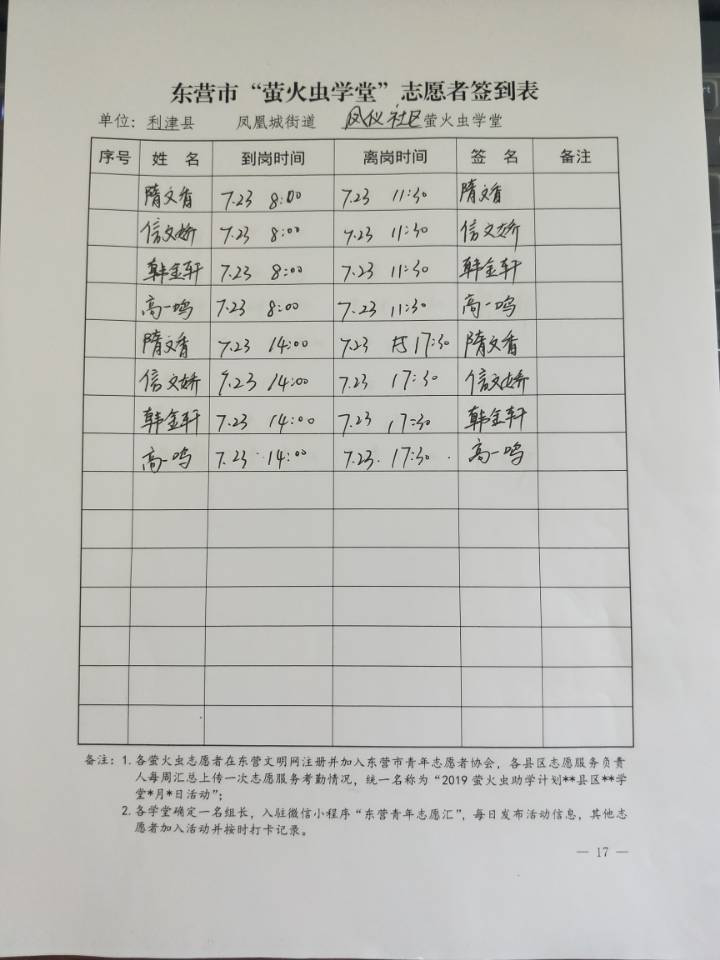 东营市“萤火虫学堂”志愿者签到表
单位：利津县 凤凰城街道 凤仪社区萤火虫学堂
序号 姓 名 到岗时间 离岗时间 签 名 备注
隋文香 7.23 8:00 7.23 11:30 隋文香
信文娇 7.23 8:00 7.23 11:30 信文娇
韩金轩 7.23 8:00 7.23 11:30 韩金轩
高一鸣 7.23 8:00 7.23 11:30 高一鸣
隋文香 7.23 14:00 7.23 17:30 隋文香
信文娇 7.23 14:00 7.23 17:30 信文娇
韩金轩 7.23 14:00 7.23 17:30 韩金轩
高一鸣 7.23 14:00 7.23. 17:30. 高一鸣
备注：1. 各萤火虫志愿者在东营文明网注册并加入东营市青年志愿者协会，各县区志愿服务负责
人每周汇总上传一次志愿服务考勤情况，统一名称为“2019 萤火虫助学计划**县区**学
堂*月*日活动”；
2. 各学堂确定一名组长，入驻微信小程序“东营青年志愿汇”，每日发布活动信息，其他志
愿者加入活动并按时打卡记录。
— 17 —